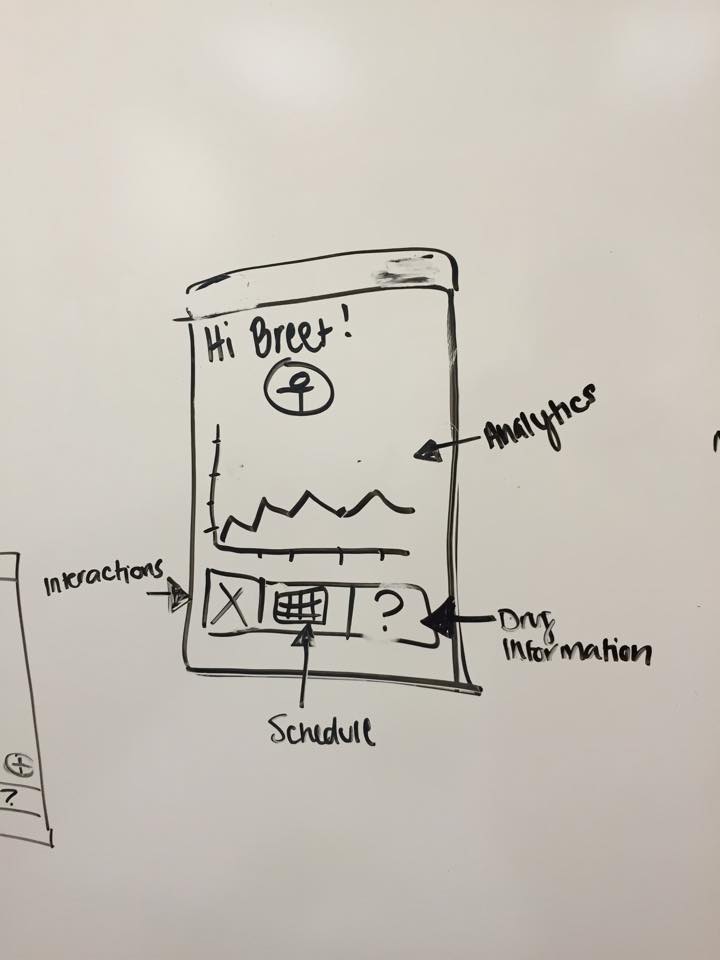 Hi Breet!
Analytics
Interactions
X
?
Drug
Information
Schedule
?